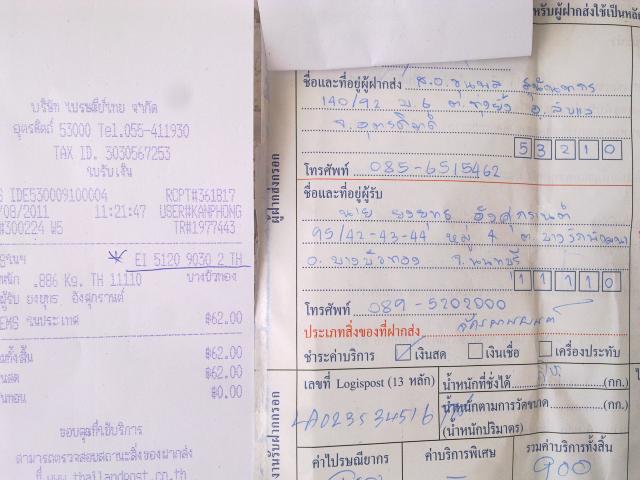 บริษัท ไปรษณีย์ไทย จำกัด
อุตรดิตถ์ 53000 Tel.055-411930
TAX ID. 3030567253
ใบรับเงิน
IDE530009100004 RCPT#361817
/08/2011 11:21:47 USER#KANPHONG
#300224 W5 TR#1977443
EI 5120 9030 2 TH
.886 Kg. TH 11110 บางบัวทอง
ผู้รับ ยงยุทธ อังศุกรานต์
EMS ในประเทศ ฿62.00
฿62.00
฿62.00
฿0.00
ขอบคุณที่ใช้บริการ
สามารถตรวจสอบสถานะสิ่งของฝากส่ง
ที่ www.thailandpost.co.th
ผู้ฝากส่งกรอก
ชื่อและที่อยู่ผู้ฝากส่ง
140/92 ม.6 ต.ทุ่งยั้ง อ.ลับแล
จ.อุตรดิตถ์
53210
โทรศัพท์ 085-6515462
ชื่อและที่อยู่ผู้รับ
นาย ยงยุทธ อังศุกรานต์
95/42-43-44 หมู่ 4 ต.บางรักพัฒนา
อ.บางบัวทอง จ.นนทบุรี
11110
โทรศัพท์ 089-5202000
ประเภทสิ่งของที่ฝากส่ง
ชำระค่าบริการ เงินสด เงินเชื่อ เครื่องประทับ
เลขที่ Logispost (13 หลัก) น้ำหนักที่ชั่งได้ (กก.)
น้ำหนักตามการวัดขนาด (กก.)
(น้ำหนักปริมาตร)
ค่าไปรษณียากร ค่าบริการพิเศษ รวมค่าบริการทั้งสิ้น
900